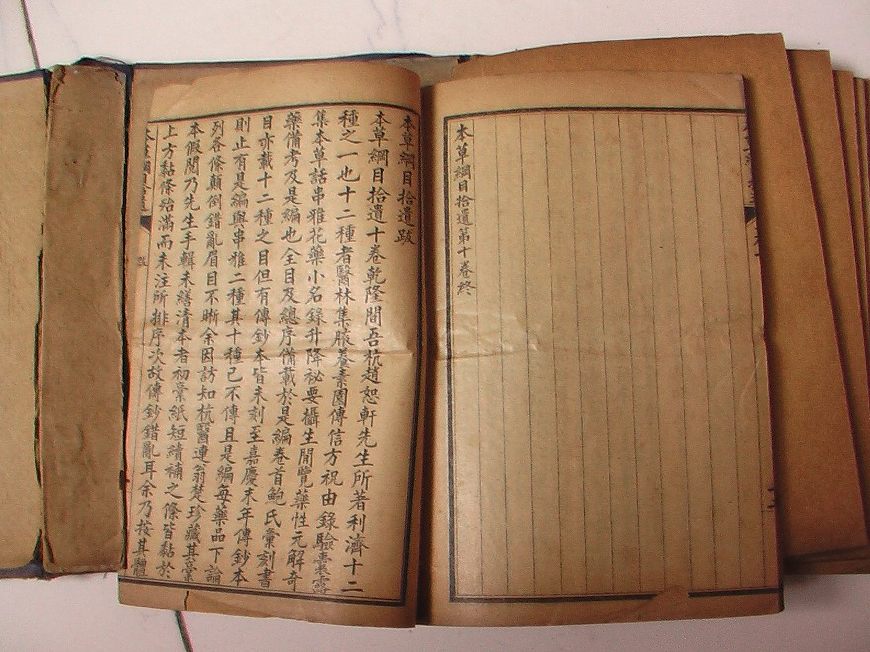 本草綱目拾遺第十卷終
本草綱目拾遺跋
本草綱目拾遺十卷乾隆間吾杭趙恕軒先生所著利濟十二
種之一也十二種者醫林集腋養素園傳信方祝由錄驗囊露
集本草話串雅花藥小名錄升降祕要攝生閒覽藥性元解奇
藥備考及是編也全目及總序備載於是編卷首鮑氏彙刻書
目亦載十二種之目但有傳鈔本皆未刻至嘉慶末年傳鈔本
則止有是編與串雅二種其十種已不傳且是編每藥品下論
列各條顛倒錯亂眉目不晰余因訪知杭醫連翁楚珍藏其稾
本假閱乃先生手輯未繕清本者初稾紙短續補之條皆黏於
上方黏條殆滿而未注所排序次故傳鈔錯亂耳余乃按其體